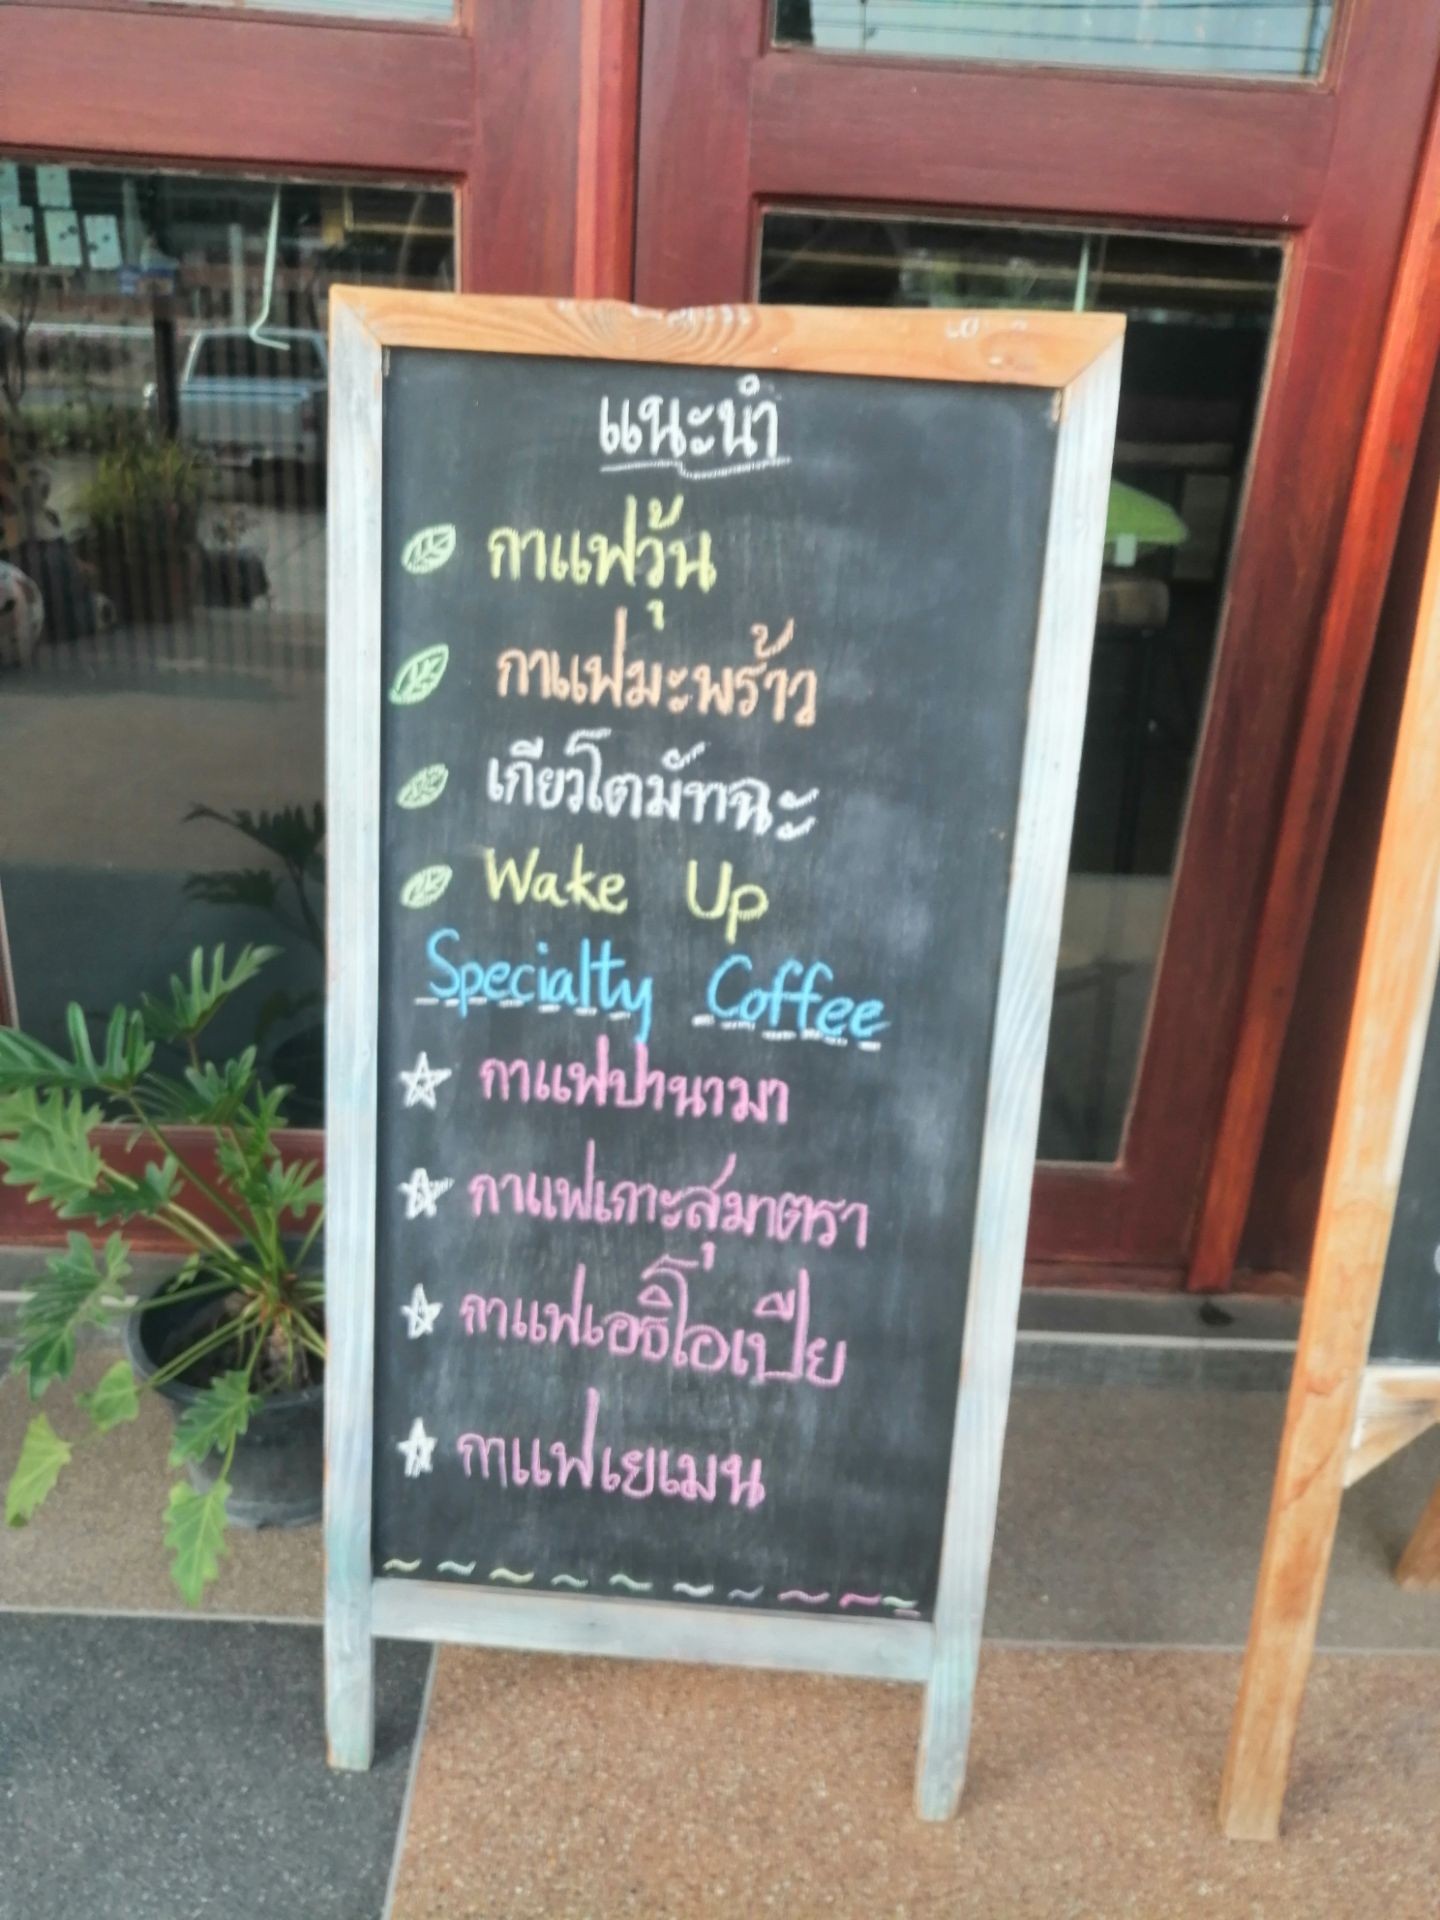 แนะนำ
กาแฟวุ้น
กาแฟมะพร้าว
เกียวโตมัทฉะ
Wake Up
Specialty Coffee
กาแฟปานามา
กาแฟเกาะสุมาตรา
กาแฟเอธิโอเปีย
กาแฟเยเมน